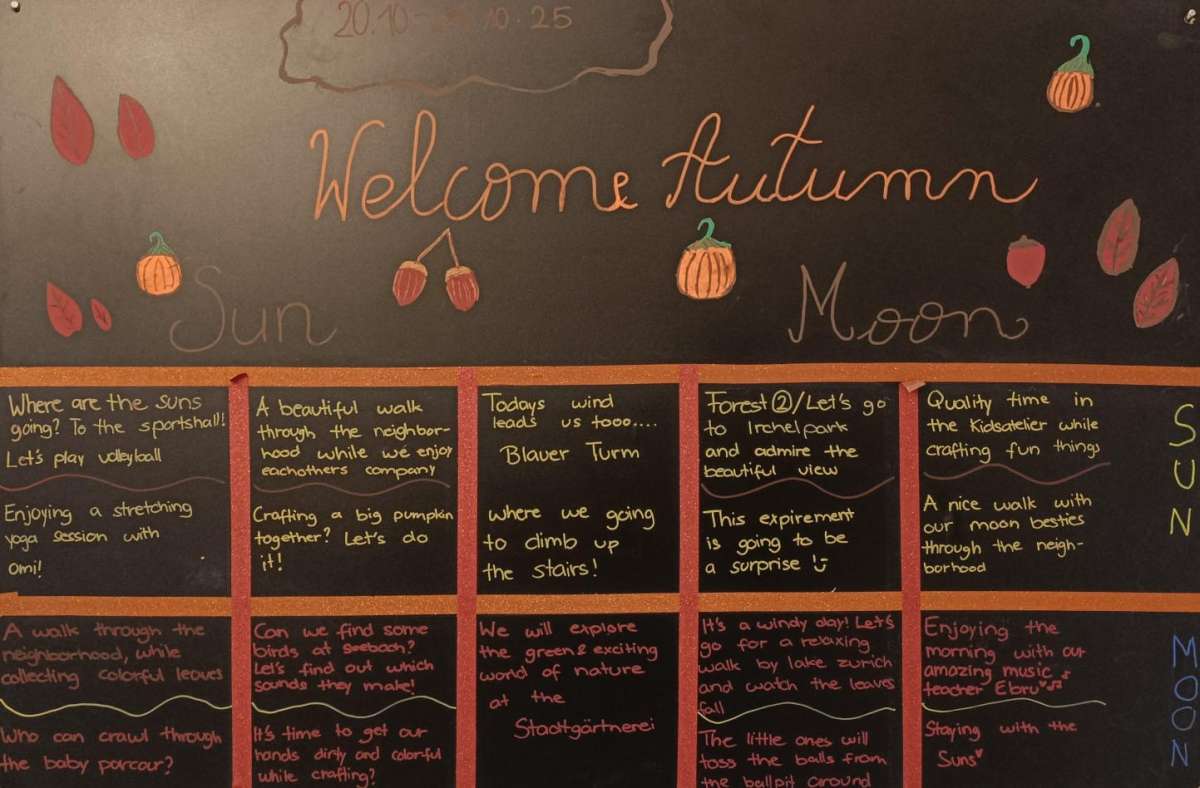 20.10 - 10.25
Welcome Autumn
Sun
Moon
Where are the suns
going? To the sportshall!
Let's play volleyball
Enjoying a stretching
yoga session with
Omi!
A beautiful walk
through the neighbor-
hood while we enjoy
eachothers company
Crafting a big pumpkin
together? Let's do
it!
Todays wind
leads us tooo....
Blauer Turm
where we going
to climb up
the stairs!
Forest ②/Let's go
to Irchelpark
and admire the
beautiful view
This expirement
is going to be
a surprise!
Quality time in
the Kidsatelier while
crafting fun things
A nice walk with
our moon besties
through the neigh-
borhood
SUN
A walk through the
neighborhood, while
collecting colorful leaves
Who can crawl through
the baby parcour?
Can we find some
birds at seebach?
Let's find out which
sounds they make!
It's time to get our
hands dirty and colorful
while crafting?
We will explore
the green & exciting
world of nature
at the
Stadtgärtnerei
It's a windy day! Let's
go for a relaxing
walk by lake zurich
and watch the leaves
fall
The little ones will
toss the balls from
the ballpit around
Enjoying the
morning with our
amazing music
teacher Ebru
Staying with the
Suns
MOON